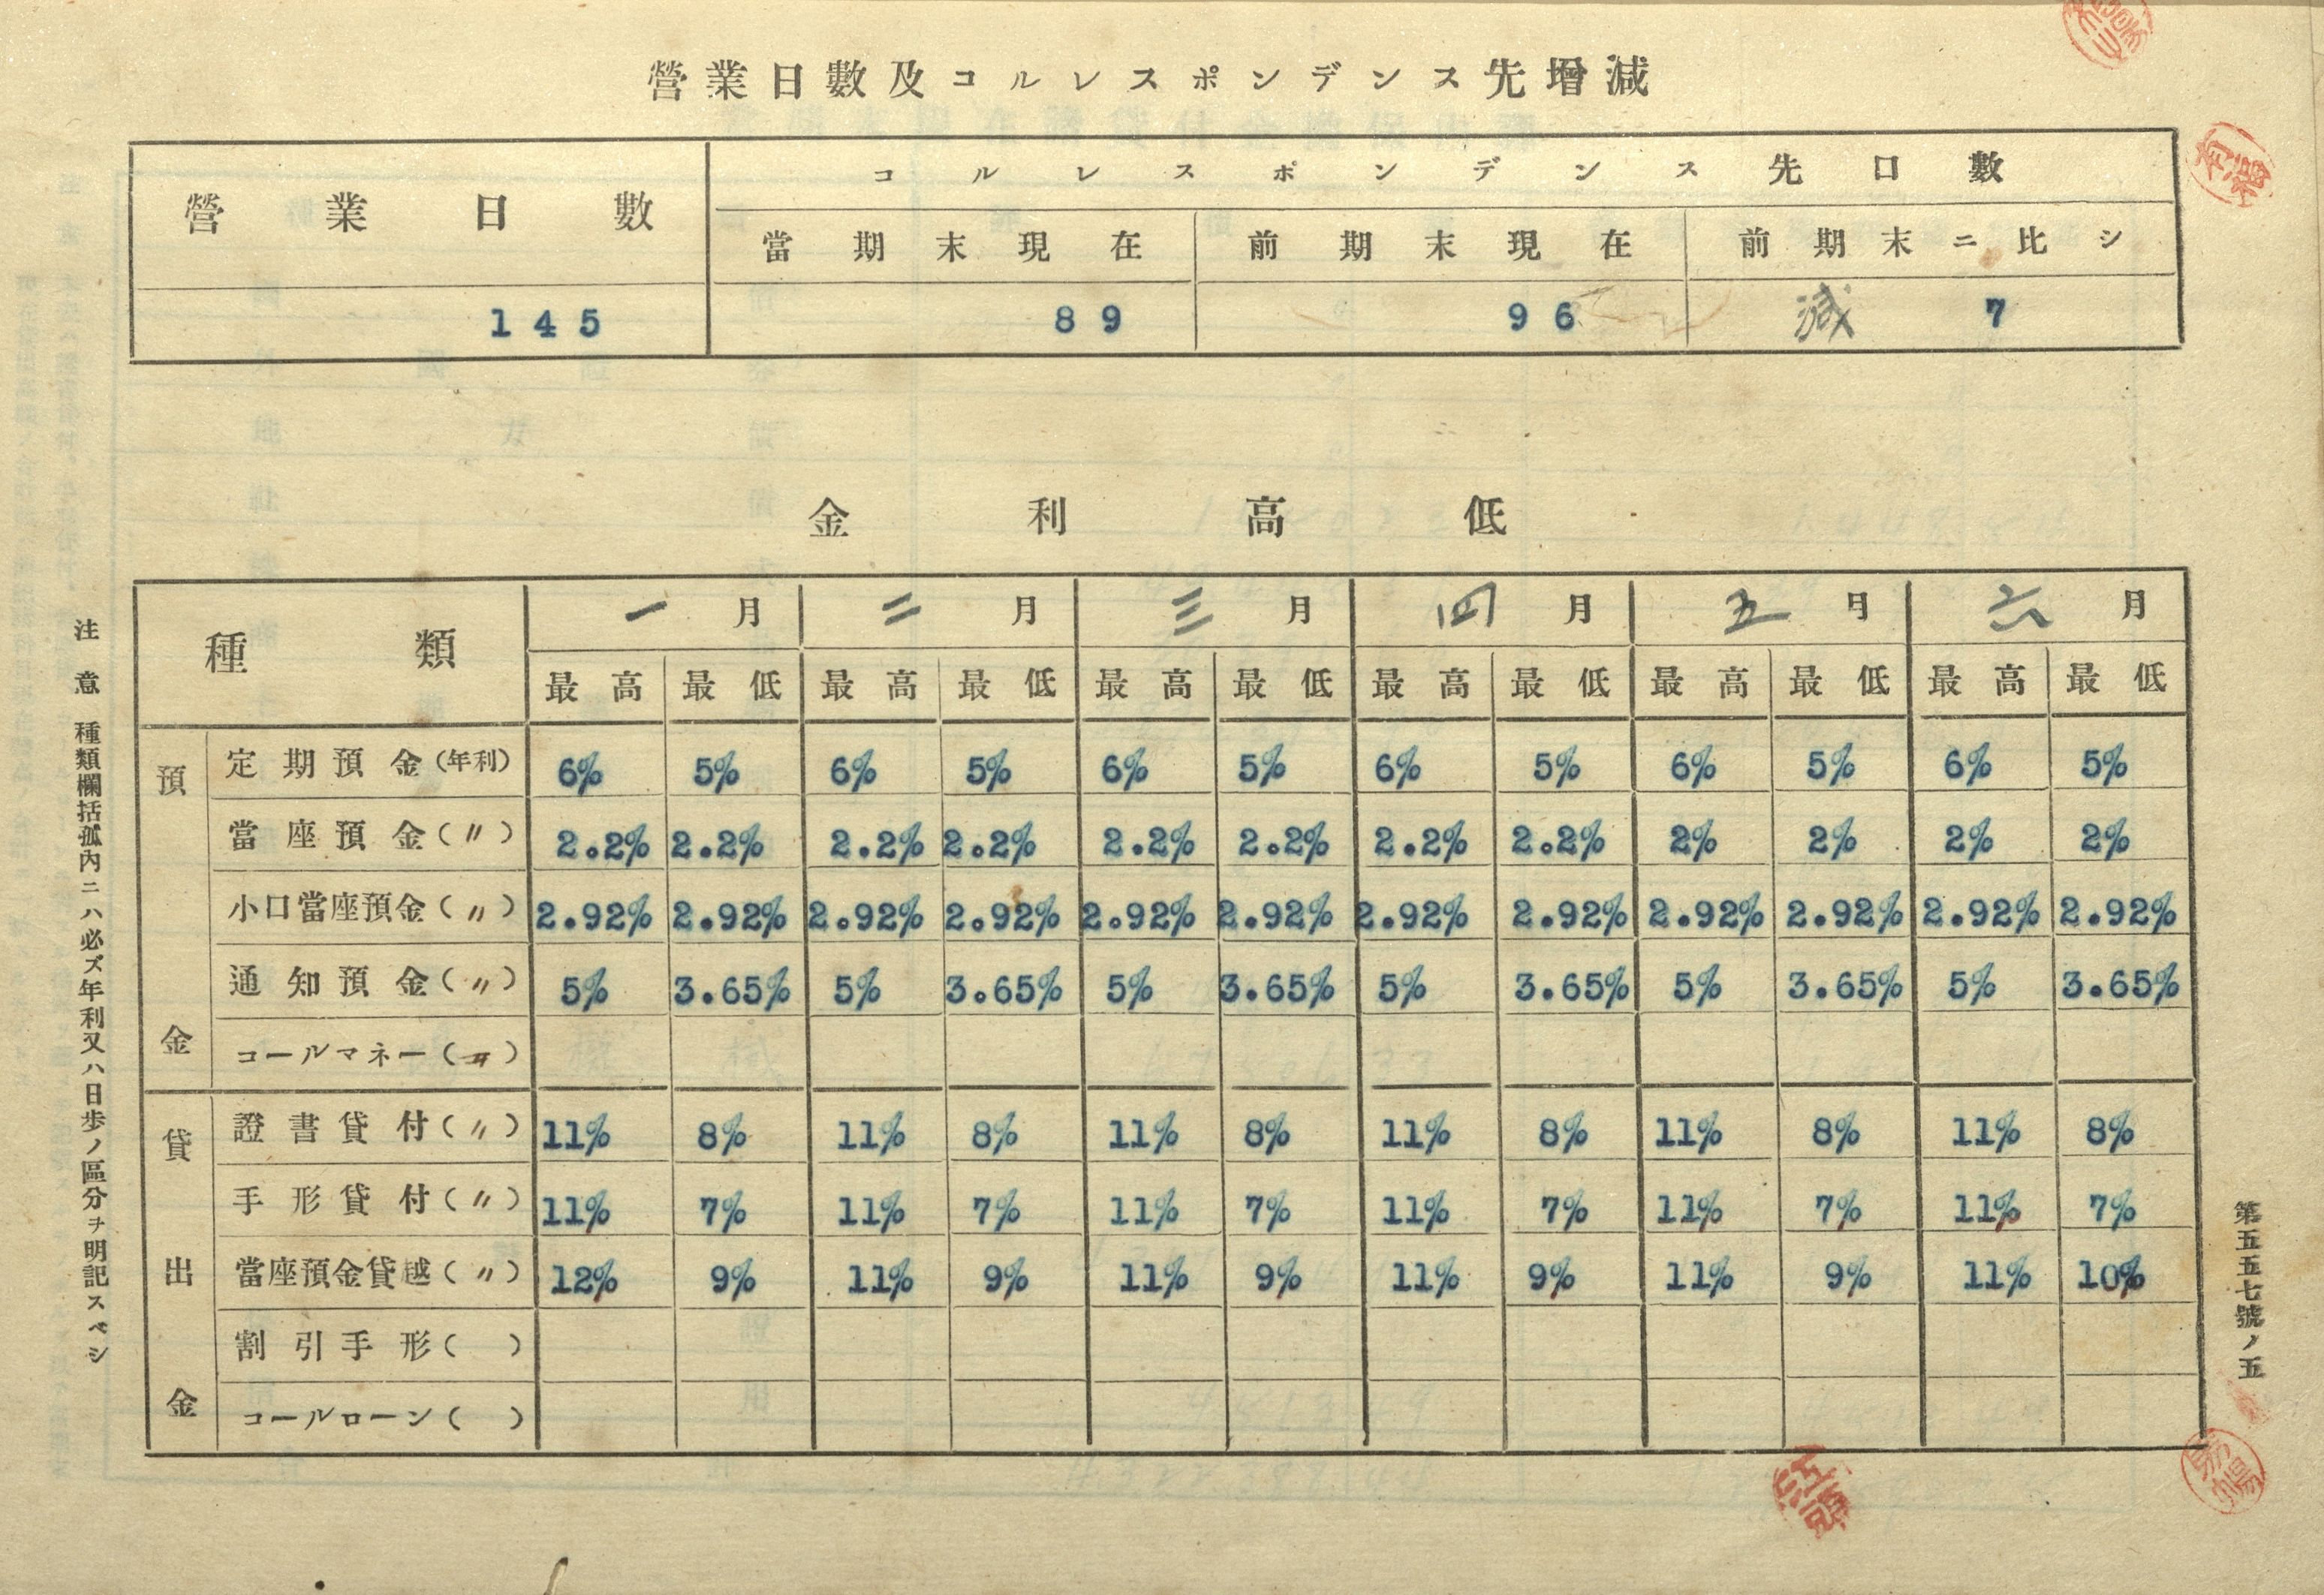 營業日數及コルレスポンデンス先增減
營業日數 コルレスポンデンス先口數
當期末現在 前期末現在 前期末ニ比シ
145 89 96 減 7
金利高低
種類 一月 二月 三月 四月 五月 六月
最高 最低 最高 最低 最高 最低 最高 最低 最高 最低 最高 最低
預金
定期預金(年利) 6% 5% 6% 5% 6% 5% 6% 5% 6% 5% 6% 5%
當座預金(〃) 2.2% 2.2% 2.2% 2.2% 2.2% 2.2% 2.2% 2.2% 2% 2% 2% 2%
小口當座預金(〃) 2.92% 2.92% 2.92% 2.92% 2.92% 2.92% 2.92% 2.92% 2.92% 2.92% 2.92% 2.92%
通知預金(〃) 5% 3.65% 5% 3.65% 5% 3.65% 5% 3.65% 5% 3.65% 5% 3.65%
コールマネー( )
貸出金
證書貸付(〃) 11% 8% 11% 8% 11% 8% 11% 8% 11% 8% 11% 8%
手形貸付(〃) 11% 7% 11% 7% 11% 7% 11% 7% 11% 7% 11% 7%
當座預金貸越(〃) 12% 9% 11% 9% 11% 9% 11% 9% 11% 9% 11% 10%
割引手形( )
コールローン( )
注意 種類欄括孤內ニハ必ズ年利又ハ日歩ノ區分ヲ明記スベシ
第五五五七號ノ五